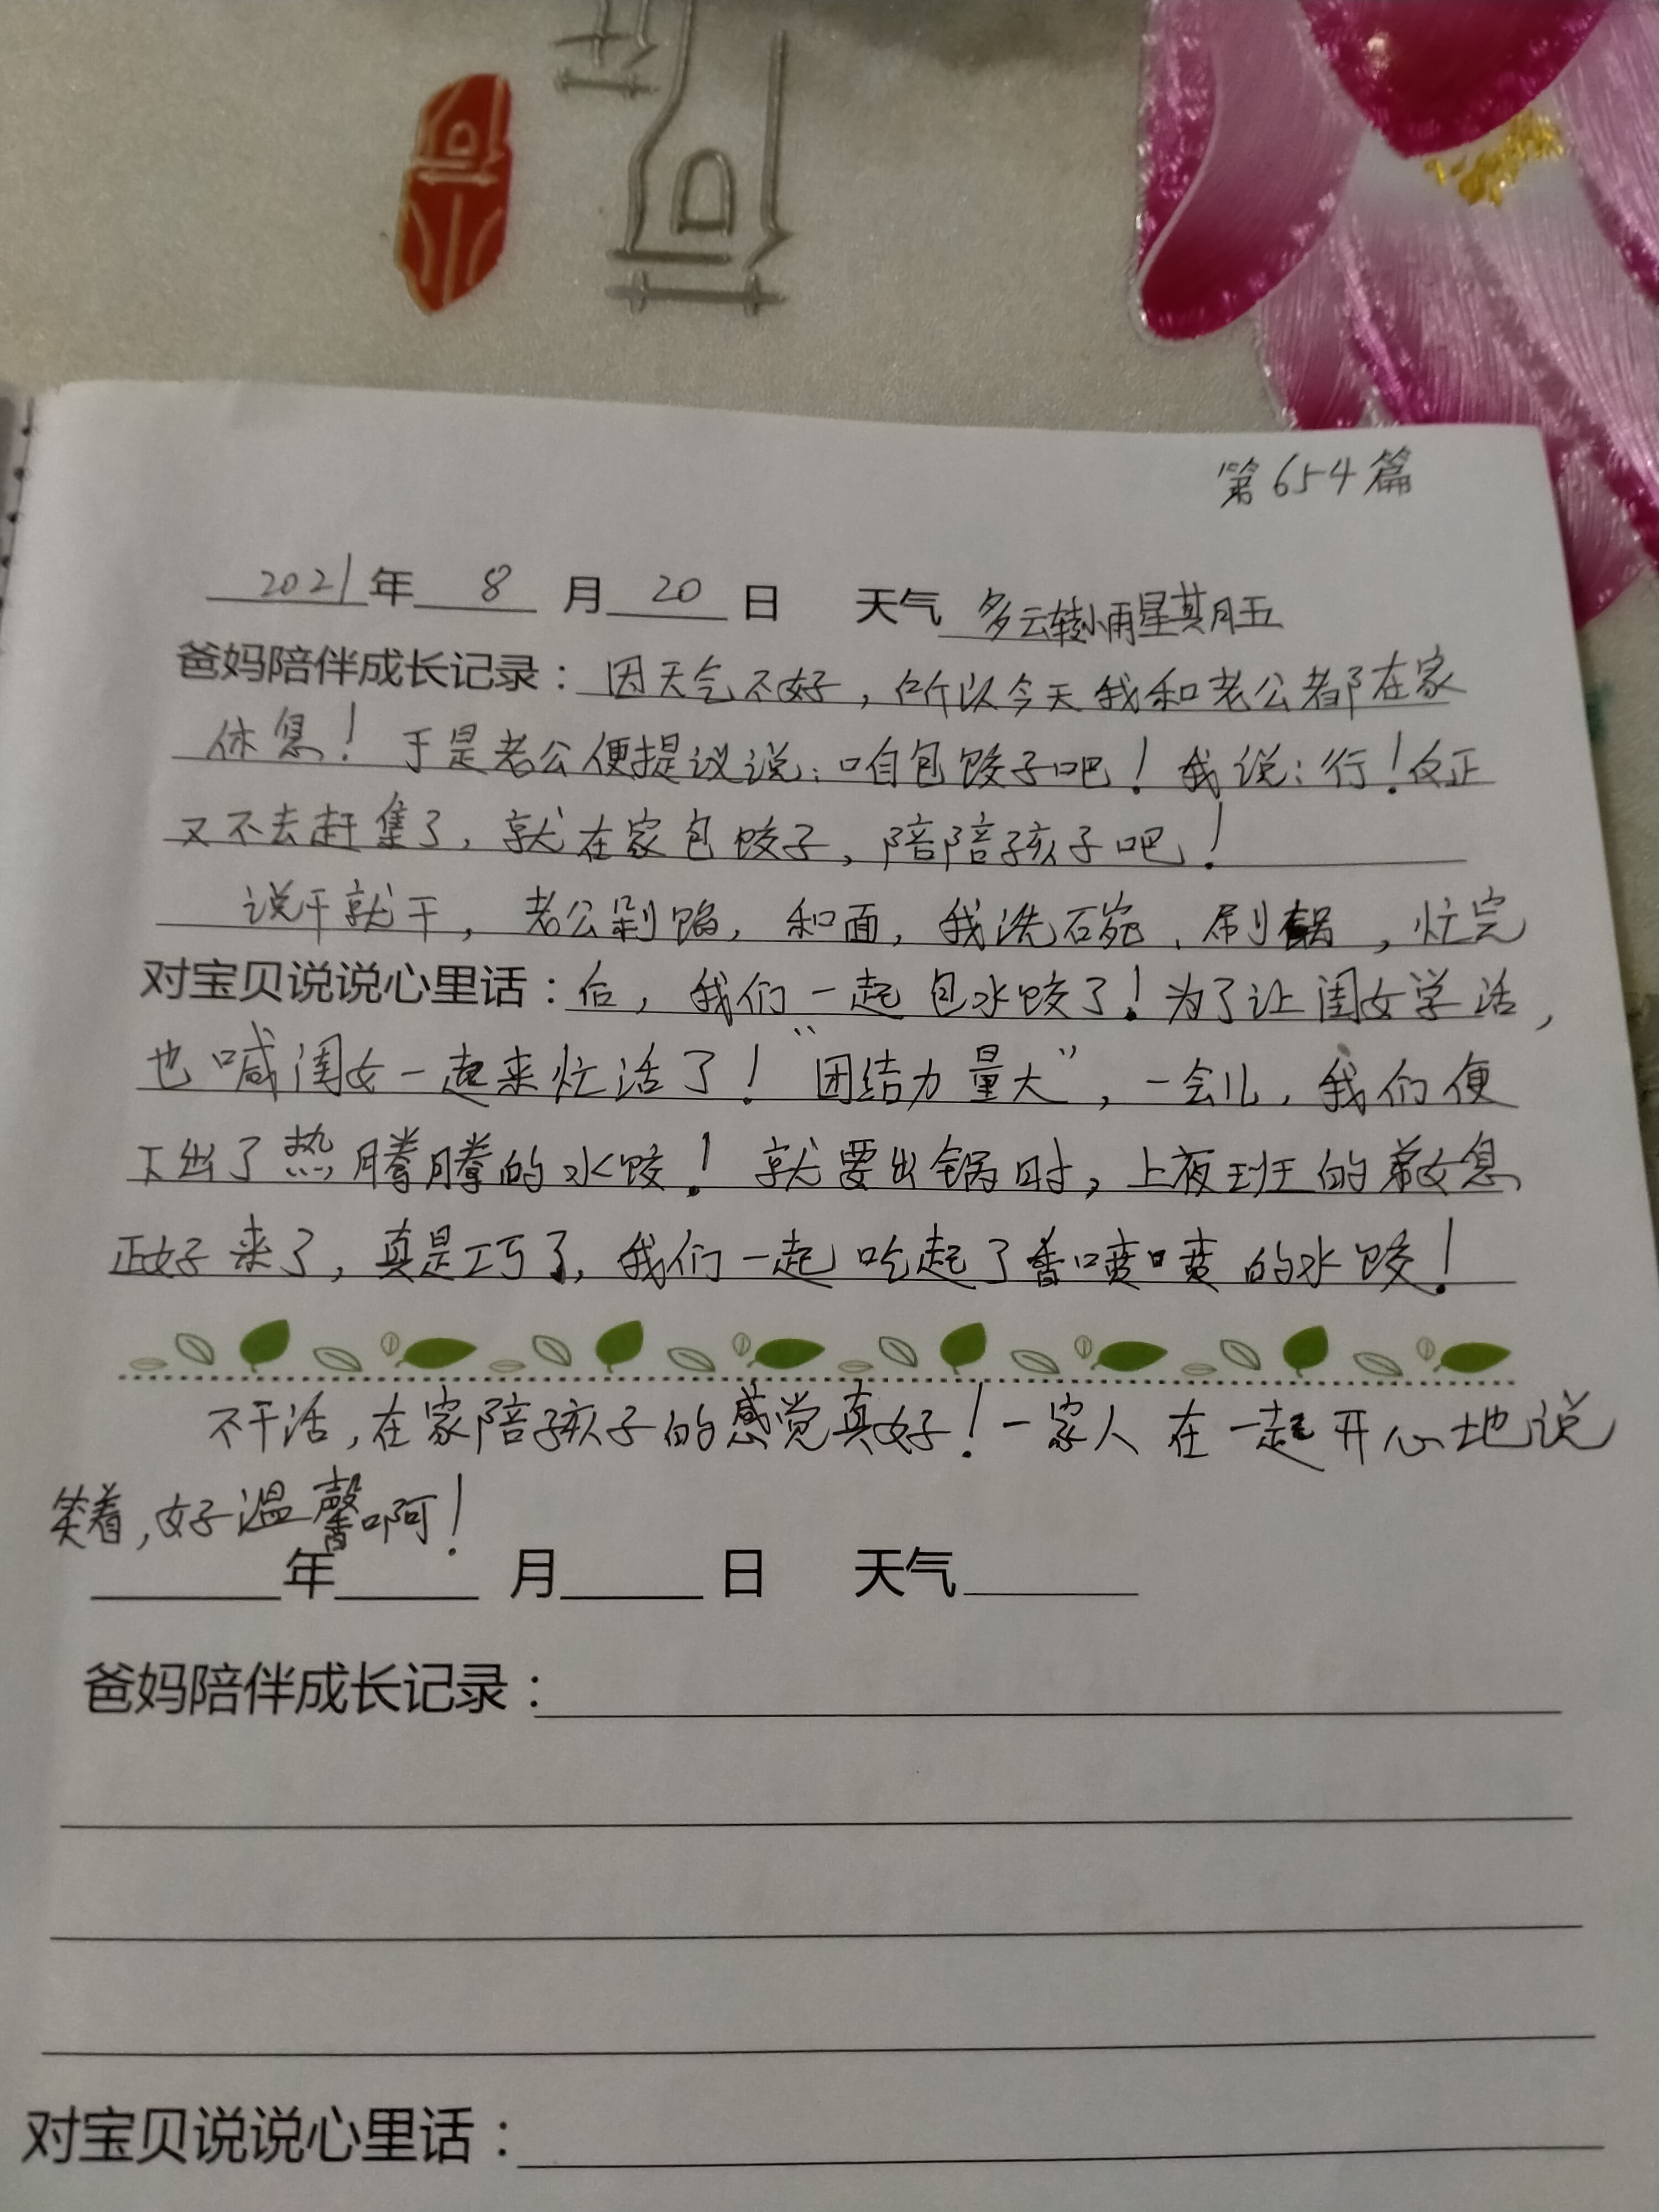 第654篇
2021年 8 月 20 日 天气 多云转小雨星期五
爸妈陪伴成长记录：因天气不好，所以今天我和老公都在家
休息！于是老公便提议说：咱包饺子吧！我说：行！反正
又不去赶集了，就在家包饺子，陪陪孩子吧！
说干就干，老公剁馅，和面，我洗碗、刷锅，忙完
对宝贝说说心里话：后，我们一起包水饺了！为了让闺女学活，
也喊闺女一起来忙活了！“团结力量大”，一会儿，我们便
下出了热腾腾的水饺！就要出锅时，上夜班的弟媳
正好来了，真是巧了，我们一起吃起了香喷喷的水饺！
不干活，在家陪孩子的感觉真好！一家人在一起开心地说
笑着，好温馨啊！
年 月 日 天气
爸妈陪伴成长记录：
对宝贝说说心里话：